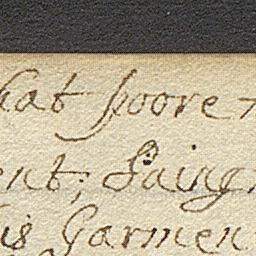 hat poore
ent; Paing
is Garmen